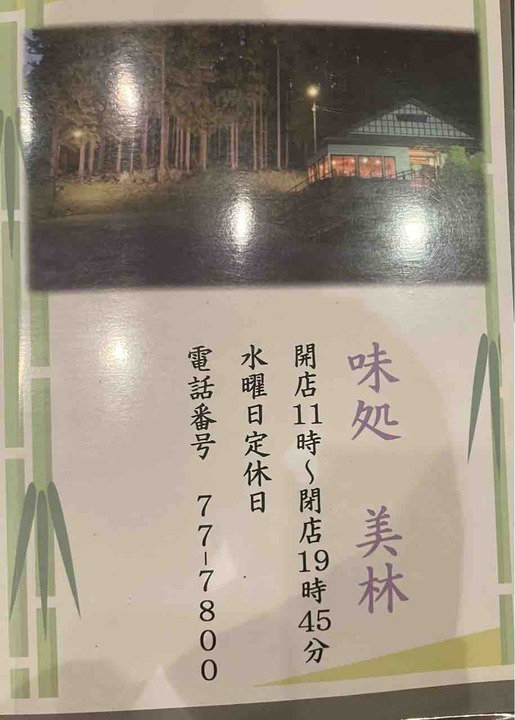 味処 美林
開店11時～閉店19時45分
水曜日定休日
電話番号 77-7800